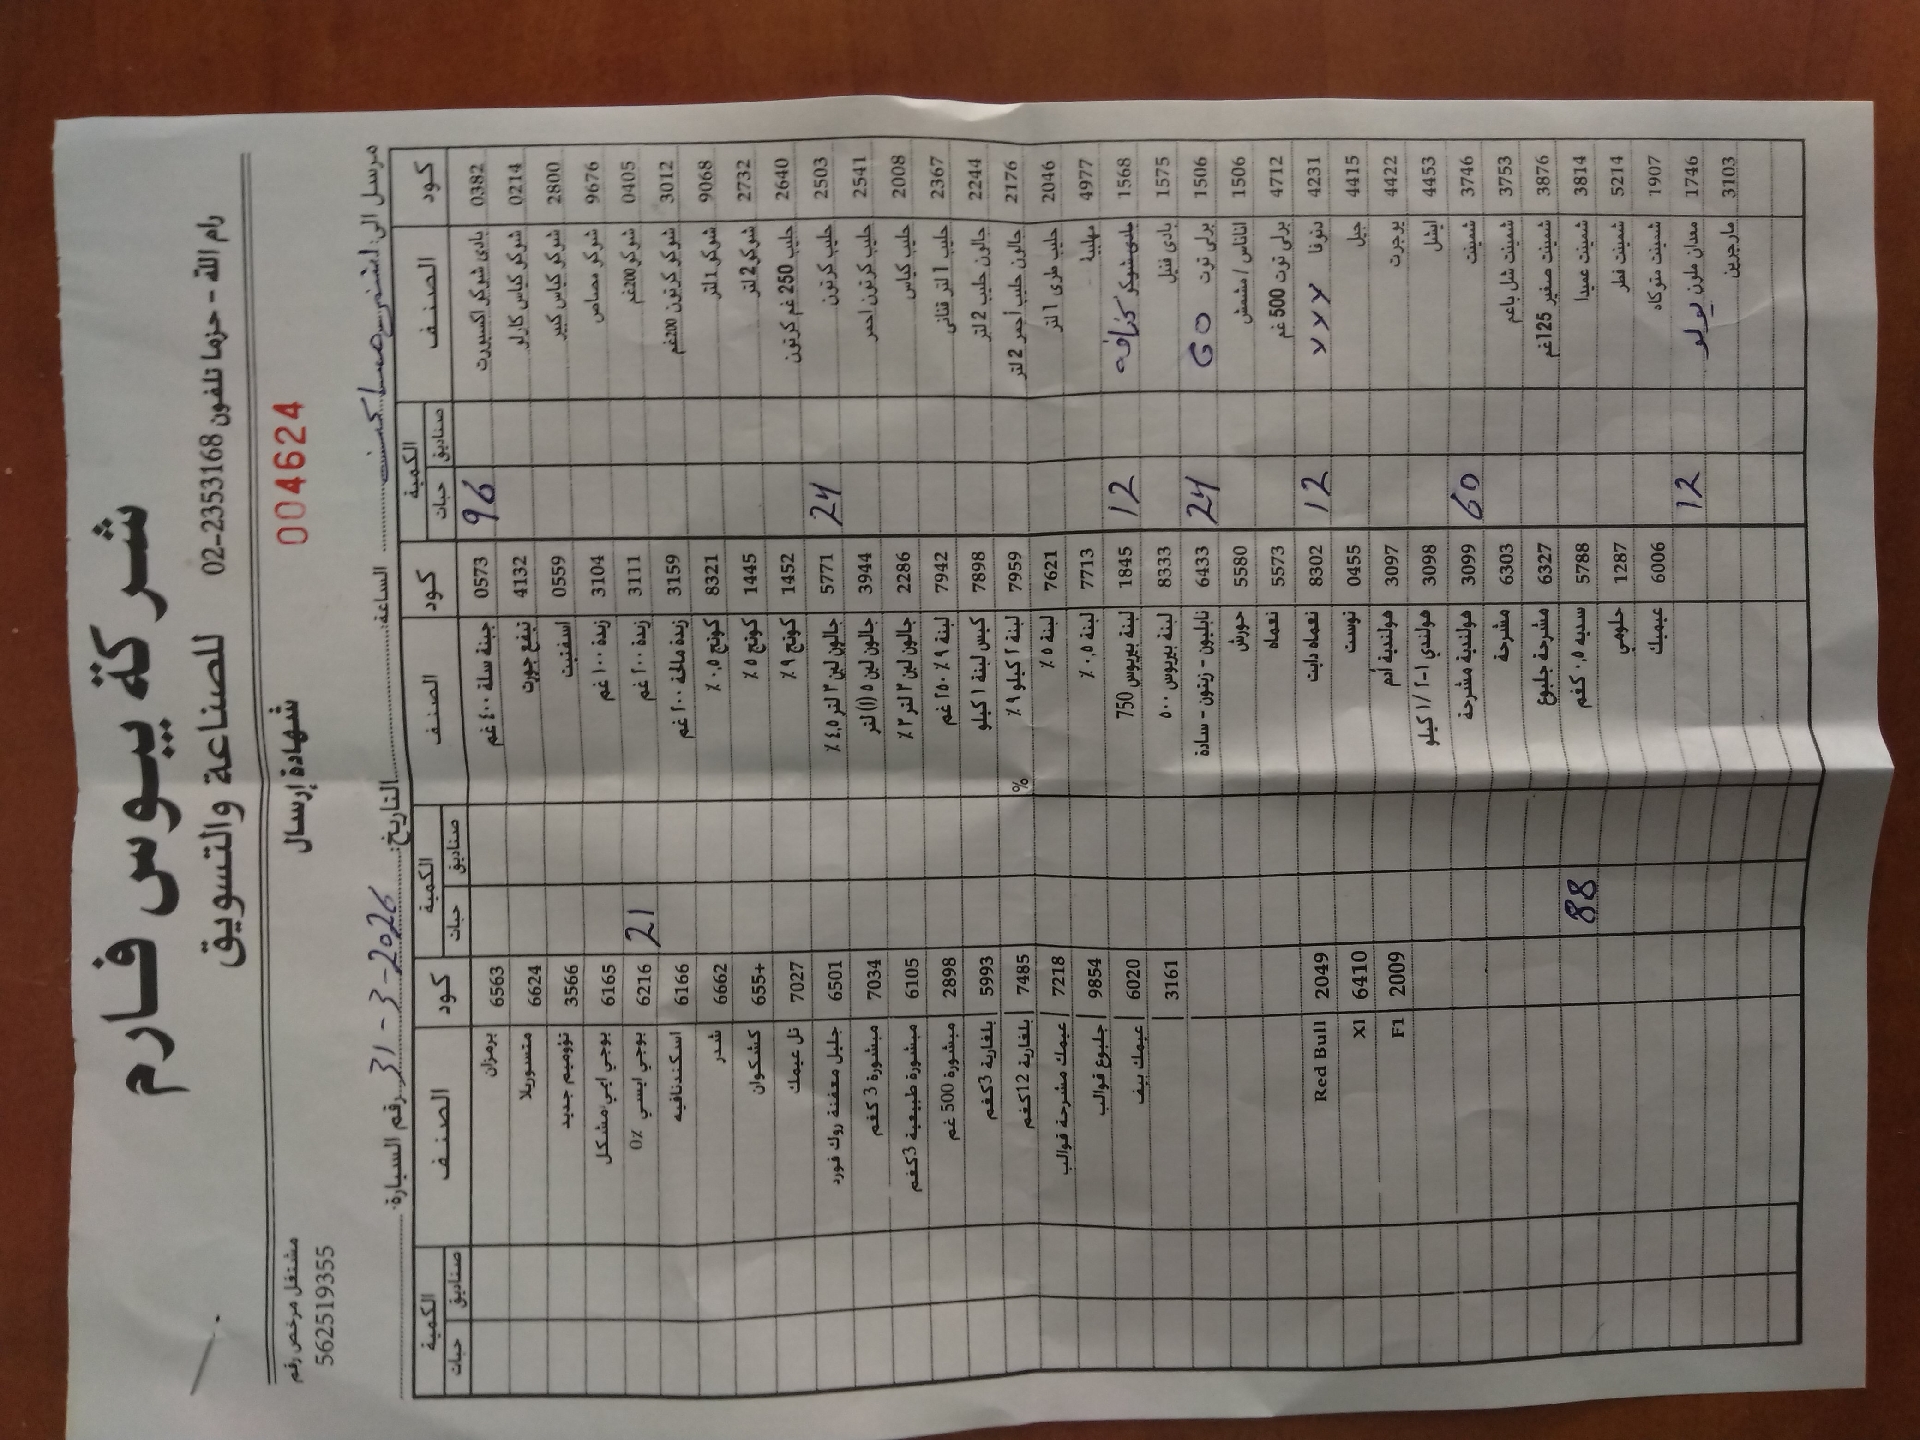 شركة بيوس فارم
للصناعة والتسويق
رام الله - حزما تلفون 02-2353168
مشتغل مرخص رقم
562519355
شهادة إرسال
0046 24
مرسل الى: الساعة: التاريخ: 31-3-2026 رقم السيارة:
كود الصنف الكمية كود الصنف الكمية كود الصنف الكمية
صناديق حبات صناديق حبات صناديق حبات
0382 بادي شوكو اكسبورت 96 0573 جبنة سلة ٤٠٠ غم 6563 برمزان
0214 شوكو كياس كارلو 4132 تبفع جورت 6624 متسوريلا
2800 شوكو كياس كبير 0559 اسفتيت 3566 نؤوميم جديد
9676 شوكو مصاص 3104 زبدة ١٠٠ غم 6165 يوجي ايبي/مشكل
0405 شوكو200غم 3111 زبدة ٢٠٠ غم 6216 يوجي ايسي 0٪ 21
3012 شوكو كرتون 200غم 3159 زبدة مالحة ٢٠٠ غم 6166 اسكندنافيه
9068 شوكو 1لتر 8321 كوتج ٠,٥ ٪ 6662 شدر
2732 شوكو 2 لتر 1445 كوتج ٥ ٪ 655+ كشكوان
2640 حليب 250 غم كرتون 1452 كوتج ٩ ٪ 7027 تل عيمك
2503 حليب كرتون 24 5771 جالون لبن ٣ لتر ٤,٥ ٪ 6501 جليل معفنة روك فورد
2541 حليب كرتون احمر 3944 جالون لبن ٥ (١) لتر 7034 مبشورة 3 كغم
2008 حليب كياس 2286 جالون لبن ٣ لتر ٣ ٪ 6105 مبشورة طبيعية 3كغم
2367 حليب 1 لتر قناني 7942 لبنة ٩ ٪ ٢٥٠ غم 2898 مبشورة 500 غم
2244 جالون حليب 2 لتر 7898 كيس لبنة ١ كيلو 5993 بلغارية 3كغم
2176 جالون حليب احمر 2 لتر 7959 لبنة ٢ كيلو ٩ ٪ % 7485 بلغارية 12كغم
2046 حليب طري 1 لتر 7621 لبنة ٥ ٪ 7218 عيمك مشرحة قوالب
4977 مهلبية 7713 لبنة ٠,٥ ٪ 9854 جلبوع قوالب
1568 بادي شوكو كنافه 12 1845 لبنة بيريوس 750 6020 عيمك بيف
1575 بادي فنيل 8333 لبنة بيريوس ٥٠٠ 3161
1506 برلي توت GO 24 6433 نابليون - زيتون - سادة
1506 اناناس / مشمش 5580 حورش
4712 برلي توت 500 غم 5573 نعماه
4231 دنونا XXX 12 8302 نعماه دايت 2049 Red Bull
4415 جيل 0455 توست 6410 Xl
4422 يوجرت 3097 هولندية أدم 2009 F1
4453 ايشل 3098 هولندي ٢-١ / ١ كيلو
3746 شمينت 60 3099 هولندية مشرحة
3753 شمينت شل باعم 6303 مشرحة
3876 شمينت صغير 125غم 6327 مشرحة جلبوع
3814 شمينت عميدا 5788 سديه ٠,٥ كغم 88
5214 شمينت فطر 1287 حلومي
1907 شمينت متوكاه 6006 عيميك
1746 معدان ملون لولو 12
3103 مارجرين